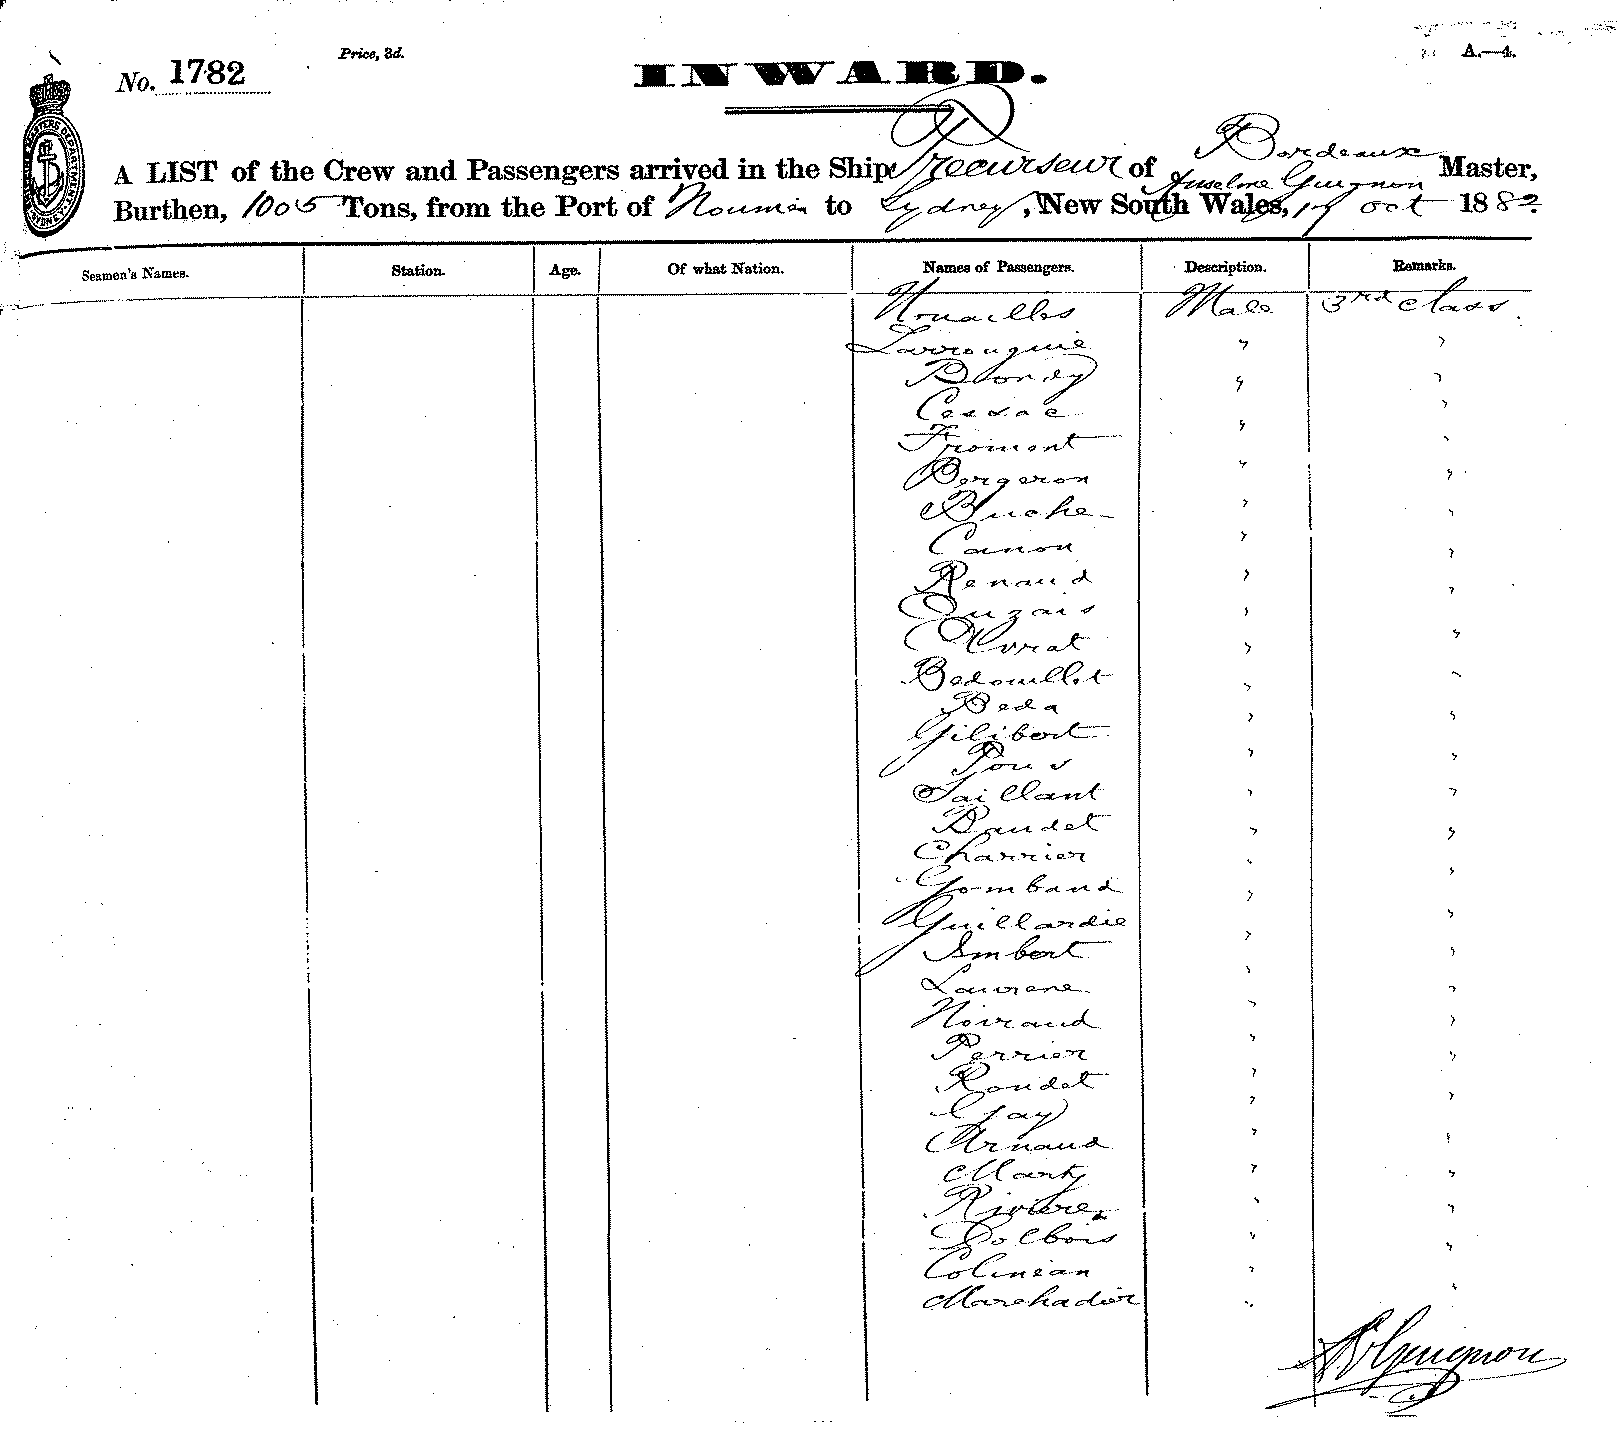 No. 1782
Price, 3d.
INWARD.
A.—4.
A LIST of the Crew and Passengers arrived in the Ship Precurseur of Bordeaux Anselme Guignon Master,
Burthen, 1005 Tons, from the Port of Noumea to Sydney, New South Wales, 17 Oct 1882
Seamen's Names. Station. Age. Of what Nation. Names of Passengers. Description. Remarks.
Nouailles Male 3rd class.
Larrouquie " "
Blondy " "
Cessac " "
Fromont " "
Bergeron " "
Buche " "
Canon " "
Renaud " "
Ouzais " "
Morat " "
Bedouillet " "
Beda " "
Gilibert " "
Pons " "
Taillant " "
Baudet " "
Charrier " "
Gombaud " "
Guillardie " "
Imbert " "
Laurene " "
Noiraud " "
Perrier " "
Roudet " "
Gay " "
Arnaud " "
Marty " "
Riviere " "
Dolbois " "
Colinean " "
Marchadier " "
A Guignon